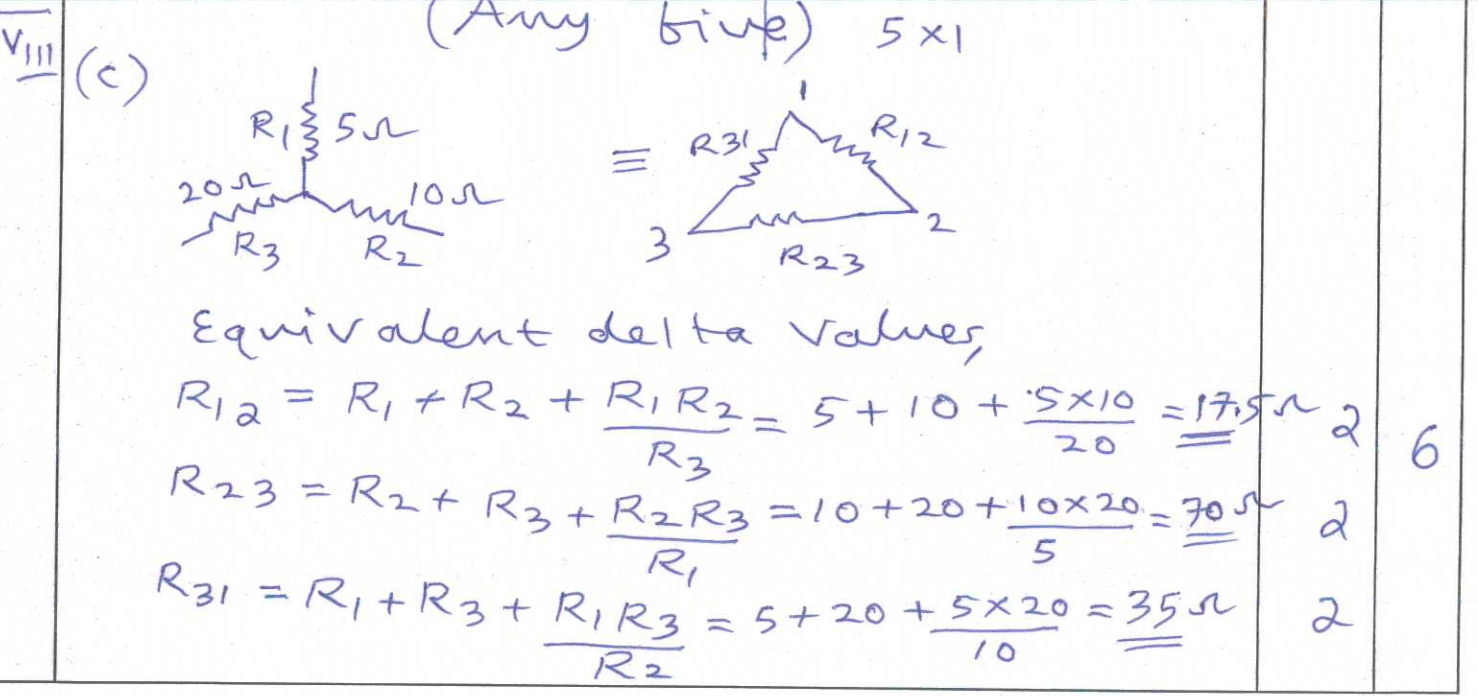 (Any five) 5×1
VIII (c)
R1 5Ω
20Ω 10Ω
R3 R2
≡
1
R31 R12
3 2
R23
Equivalent delta values,
R12 = R1 + R2 + R1 R2 / R3 = 5 + 10 + 5×10 / 20 = 17.5Ω 2
6
R23 = R2 + R3 + R2 R3 / R1 = 10 + 20 + 10×20 / 5 = 70Ω 2
R31 = R1 + R3 + R1 R3 / R2 = 5 + 20 + 5×20 / 10 = 35Ω 2